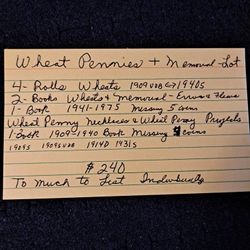 Wheat Pennies + Memorial Lot
4- Rolls Wheats 1909 VDB 1940s
2- Books Wheats & Memorial - Errors &
1- Book 1941-1975 Missing 5 coins
Wheat Penny Necklaces & Wheat Penny Projects
1 Book 1909-1940 Book Missing coins
1909S 1909SVDB 1914D 1931S
$240
To Much to List Individually